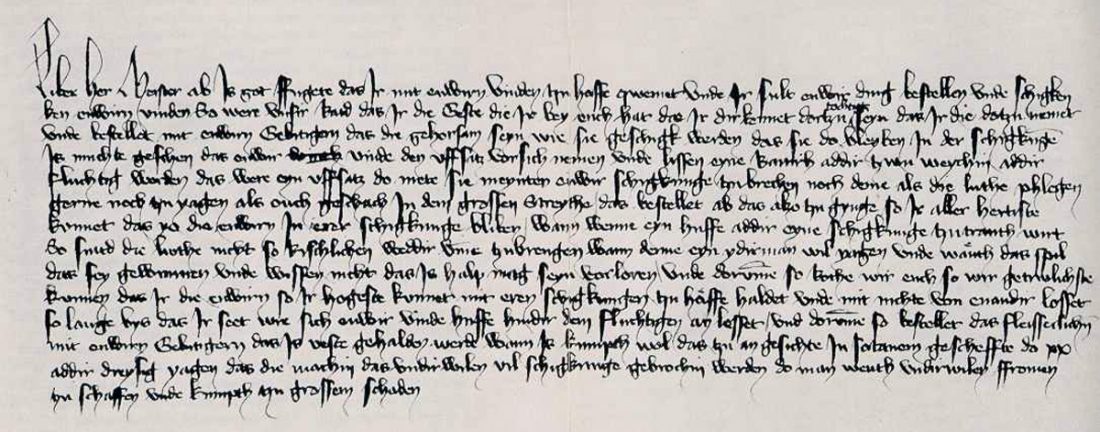 Liber her Meister ab Is got ffugete das Ir mit euwirn vinden czu hoffe qwemet vnde Ir sult euwir ding bestellen vnde schigken
ken euwirn vinden So were vnsir Rad das Ir die Geste die Ir bey euch hat die Ir dirkennet dorczu tochtig seyn das Ir die dorczu nemet
vnde bestellet mit euwirn Gebitigern das die gehorsam seyn wie sie geschigk werden das sie do bleyben In der schigkunge
Is muchte geschen das euwir vinde den vffsitz vorsich nemen vnde lissen eyne banir addir czwu weychin addir
fluchtig werden das were eyn vffsatz do mete Sie meynten euwir schigkunge czubrechen noch deme als die luthe phlegen
gerne noch czu yagen als ouch geschach In dem grossen Streythe das bestellet ab das also czu gynge so Ir aller hertiste
kunnet das yo die euwirn In erer schigkunge bliben wann wenne eyn huffe addir eyne schigkunge czutranth wirt
So sind die luthe nicht so lichtlichen weddir vmme czubrengen wann denne eyn ydirman wil yagen vnde wänth das spil
das sey gewonnen vnde wissen nicht das Is halp mag seyn vorloren vnde dorumme so bithe wir euch so wir getruwlichste
kunnen das Ir die euwirn so Ir hogeste kunnet mit eren schigkungen czu häffe haldet vnde mit nichte von enandir losset
so lange bys das Ir seet wie sich euwir vinde huffe hindir dem fluchtigen an lesset vnd dorumme so bestellet das fleisseclichin
mit euwirn Gebitigern das Is veste gehalden werde wann Is kumpth wol das czu angesichte In sotanem gescheffte do xx
addir dreysig yagen das die machin das vndirwilen vil schigkunge gebrochin werden do man wenth vndirwilen ffromen
czu schaffen vnde kumpth czu grossem schaden